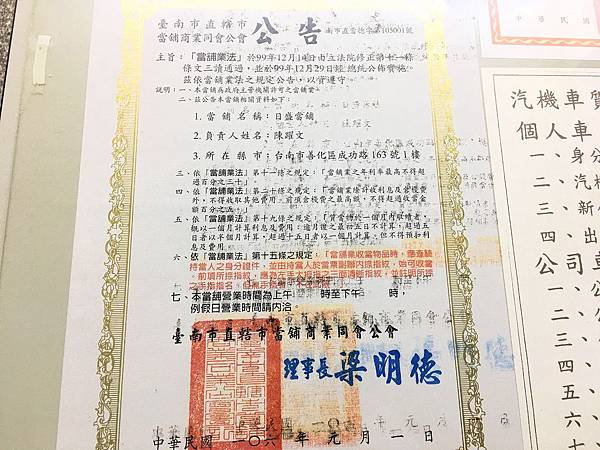 臺南市直轄市
當舖商業同業公會
公告
南市直當德字第105001號
主旨：「當舖業法」於99年12月14日由立法院修正第十一條
條文三讀通過，並於99年12月29日經 總統公佈實施。
茲依當舖業法之規定公告，以資遵守。
說明：一、本當舖為政府主管機關許可之當舖業。
二、茲公告本當舖相關資料如下：
1. 當舖名稱：日盛當舖
2. 負責人姓名：陳躍文
3. 所在縣市：台南市善化區成功路163號1樓
三、依「當舖業法」第十一條之規定：「當舖業之年利率最高不得超
過百分之三十」。
四、依「當舖業法」第二十條之規定：「當舖業除計收利息及倉棧費
外，不得收取其他費用，前項倉棧費之最高額，不得超過收當金
額百分之五」。
五、依「當舖業法」第十九條之規定：「質當物於一個月內取贖者，
概以一個月計算利息及費用；逾月後之最初五日不計算，超過五
日者以半個月計算，超過十五日者以一個月計算，但不得預扣利
息及費用。
六、依「當舖業法」第十五條之規定：「當舖業收當物品時，應查驗
持當人之身分證件，並由持當人於當票副聯內捺指紋，始可收當
。前項所捺指紋，應為左手大拇指之三面清晰指紋，並註明所捺
七、本當舖營業時間為上午 時至下午 時，
例假日營業時間請內洽。
臺南市直轄市當舖商業同業公會
理事長 梁明德
中華民國 一〇六 年 元 月 一 日
中華民國
汽機車質
個人車
一、身分
二、汽機
三、新
四、出
公司車
一、公
二、公
三、公
四、
五、
六、
七、